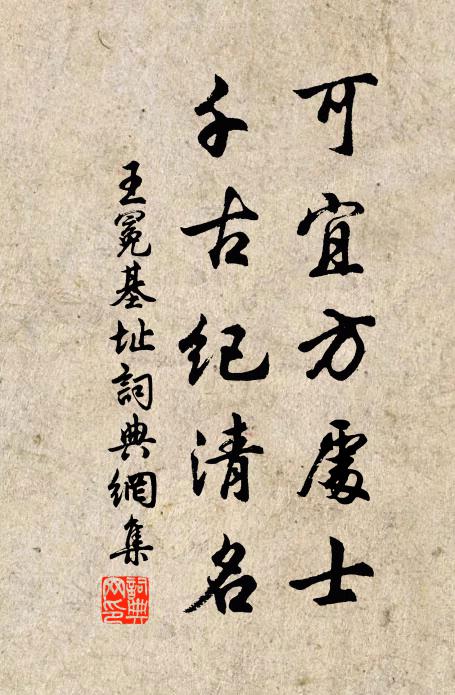 可宜方處士
千古纪清名
王冕基址詞典網集
詞典
网印